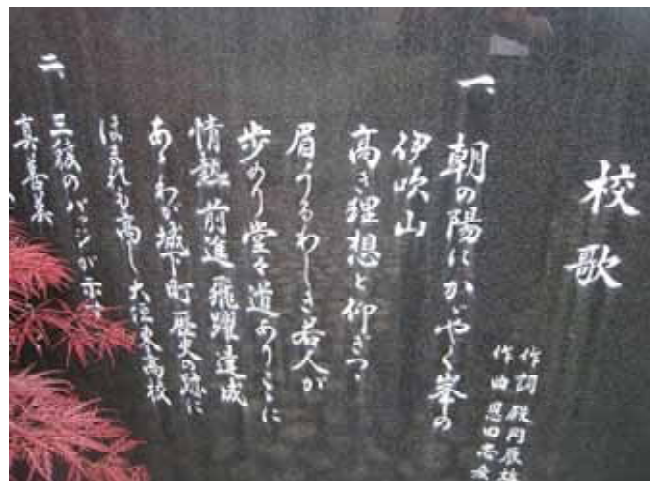 校歌
作詞 殿岡辰雄
作曲 恩田忠
一、
朝の陽にかゞやく峯の
伊吹山
高き理想と仰ぎつゝ
眉うるわしき若人が
歩めり堂々道ありここに
情熱 前進 飛躍 達成
あゝわが城下町歴史の跡に
ほまれも高し大垣東高校
二、
三稜のペンが示す
真善美